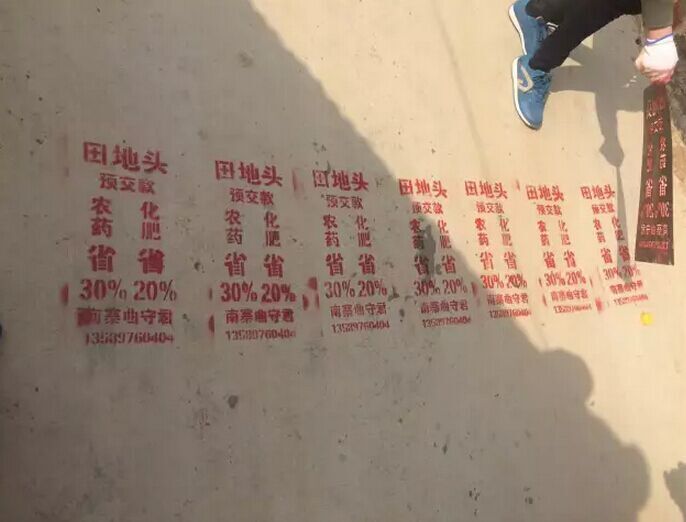 田地头
预交款
农 化
药 肥
省 省
30% 20%
南寨曲守君
13589760404
田地头
预交款
农 化
药 肥
省 省
30% 20%
南寨曲守君
13589760404
田地头
预交款
农 化
药 肥
省 省
30% 20%
南寨曲守君
13589760404
田地头
预交款
农 化
药 肥
省 省
30% 20%
南寨曲守君
13589760404
田地头
预交款
农 化
药 肥
省 省
30% 20%
南寨曲守君
13589760404
田地头
预交款
农 化
药 肥
省 省
30% 20%
南寨曲守君
13589760404
田地头
预交款
农 化
药 肥
省 省
30% 20%
南寨曲守君
13589760404